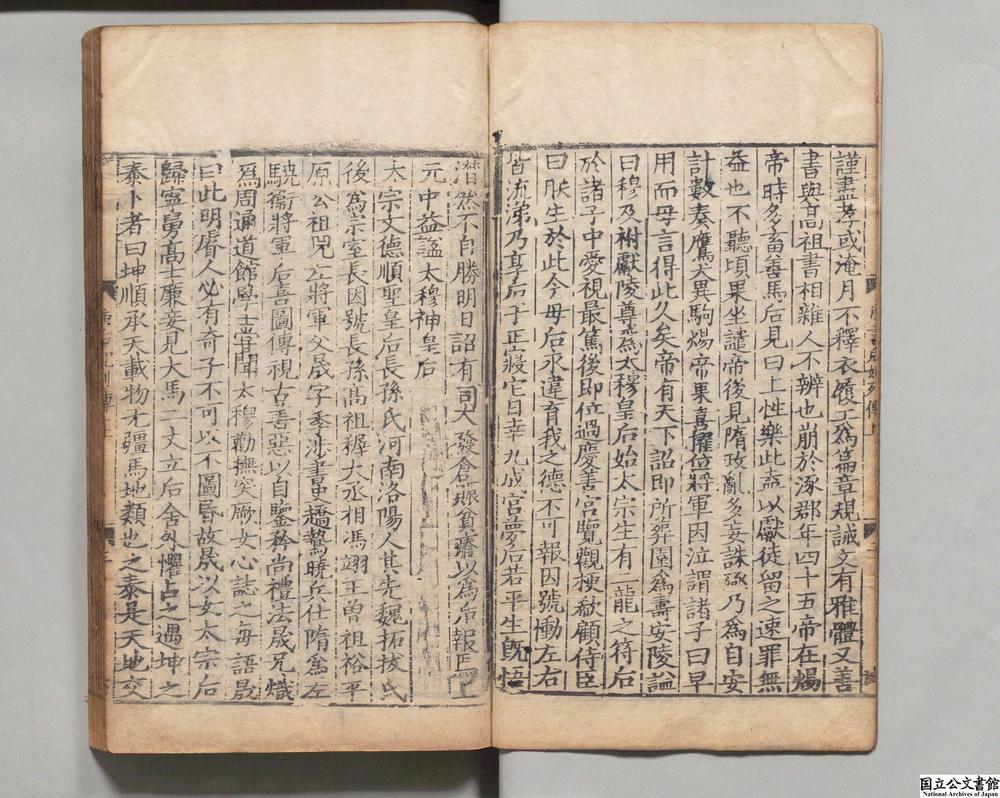 謹盡孝或淹月不釋衣履工爲篇章規誡文有雅體又善
書與高祖書相雜人不辨也崩於涿郡年四十五帝在煬
帝時多畜善馬后見曰上性樂此盍以獻徒留之速罪無
益也不聽頃果坐譴帝後見隋政亂多妄誅殛乃爲自安
計數奏鷹犬異駒煬帝果喜擢位將軍因泣謂諸子曰早
用而母言得此久矣帝有天下詔即所葬園爲壽安陵謚
曰穆及祔獻陵尊爲太穆皇后始太宗生有二龍之符后
於諸子中愛視最篤後即位過慶善宮覽觀梗欷顧侍臣
曰朕生於此今母后永違育我之德不可報因號慟左右
皆流涕乃享后于正寢它日幸九成宮夢后若平生旣悟
潸然不自勝明日詔有司大發倉振貧瘠以爲后報焉上
元中益謚太穆神皇后
太宗文德順聖皇后長孫氏河南洛陽人其先魏拓拔氏
後爲宗室長因號長孫高祖稺大丞相馮翊王曾祖裕平
原公祖兕左將軍父晟字季涉書史趫鷙曉兵仕隋爲左
驍衞將軍后喜圖傳視古善惡以自鑒矜尚禮法晟兄熾
爲周通道館學士嘗聞太穆勸撫突厥女心誌之每語晟
曰此明睿人必有奇子不可以不圖昏故晟以女太宗后
歸寧舅高士廉妾見大馬二丈立后舍外懼占之遇坤之
泰卜者曰坤順承天載物无疆馬地類也之泰是天地交
国立公文書館
National Archives of Japan